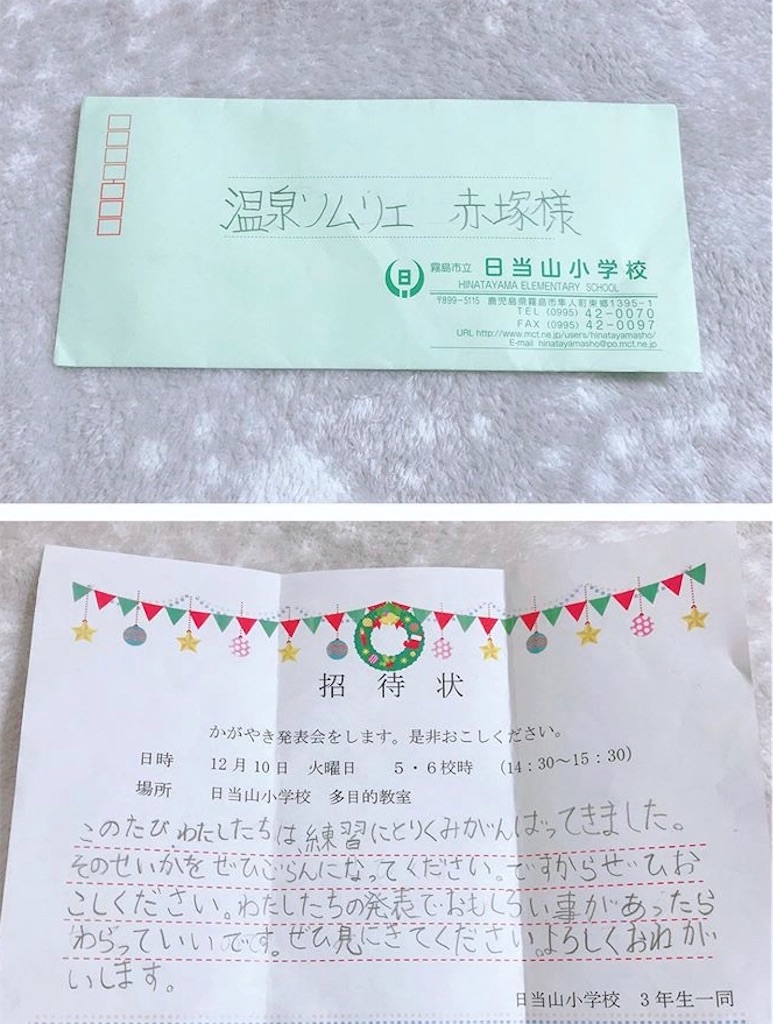 温泉ソムリエ 赤塚様
霧島市立 日当山小学校
HINATAYAMA ELEMENTARY SCHOOL
〒899-5115 鹿児島県霧島市隼人町東郷1395-1
TEL (0995) 42-0070
FAX (0995) 42-0097
URL http://www.mct.ne.jp/users/hinatayamasho/
E-mail hinatayamasho@po.mct.ne.jp
招待状
かがやき発表会をします。是非おこしください。
日時 12月10日 火曜日 5・6校時 (14:30～15:30)
場所 日当山小学校 多目的教室
このたび、わたしたちは、練習にとりくみがんばってきました。
そのせいかをぜひごらんになってください。ですからぜひお
こしください。わたしたちの発表でおもしろい事があったら
わらっていいです。ぜひ見にきてください。よろしくおねがい
いします。
日当山小学校 3年生一同